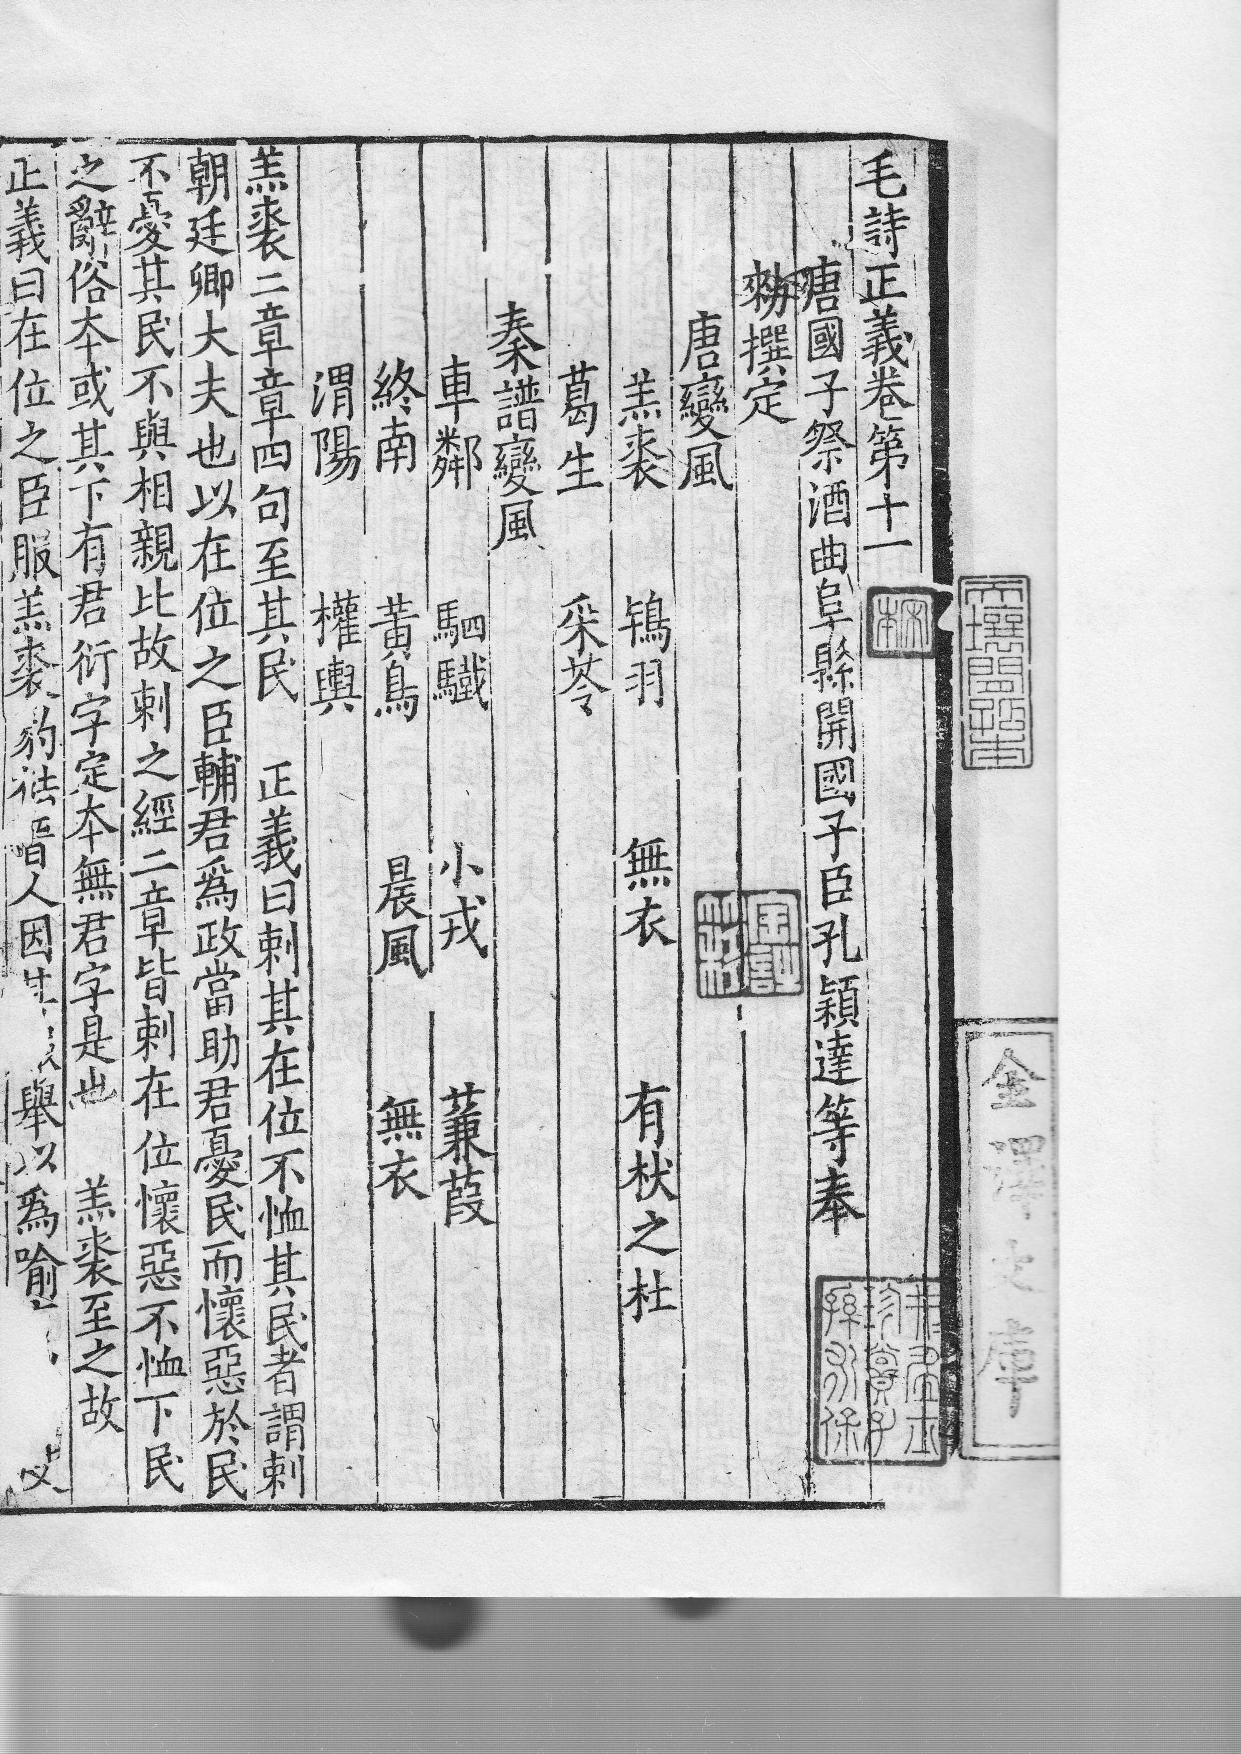 毛詩正義卷第十一
唐國子祭酒曲阜縣開國子臣孔穎達等奉
勑撰定
唐變風
羔裘 鴇羽 無衣 有杕之杜
葛生 采苓
秦譜變風
車鄰 駟驖 小戎 蒹葭
終南 黃鳥 晨風 無衣
渭陽 權輿
羔裘二章章四句至其民 正義曰刺其在位不恤其民者謂刺
朝廷卿大夫也以在位之臣輔君爲政當助君憂民而懷惡於民
不憂其民不與相親比故刺之經二章皆刺在位懷惡不恤下民
之辭俗本或其下有君衍字定本無君字是也 羔裘至之故
正義曰在位之臣服羔裘豹袪晉人因 舉以爲喻
金澤文庫